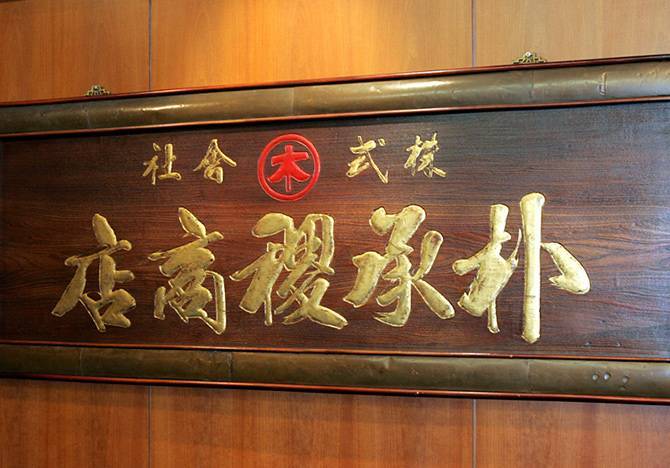 株式木會社
朴承稷商店